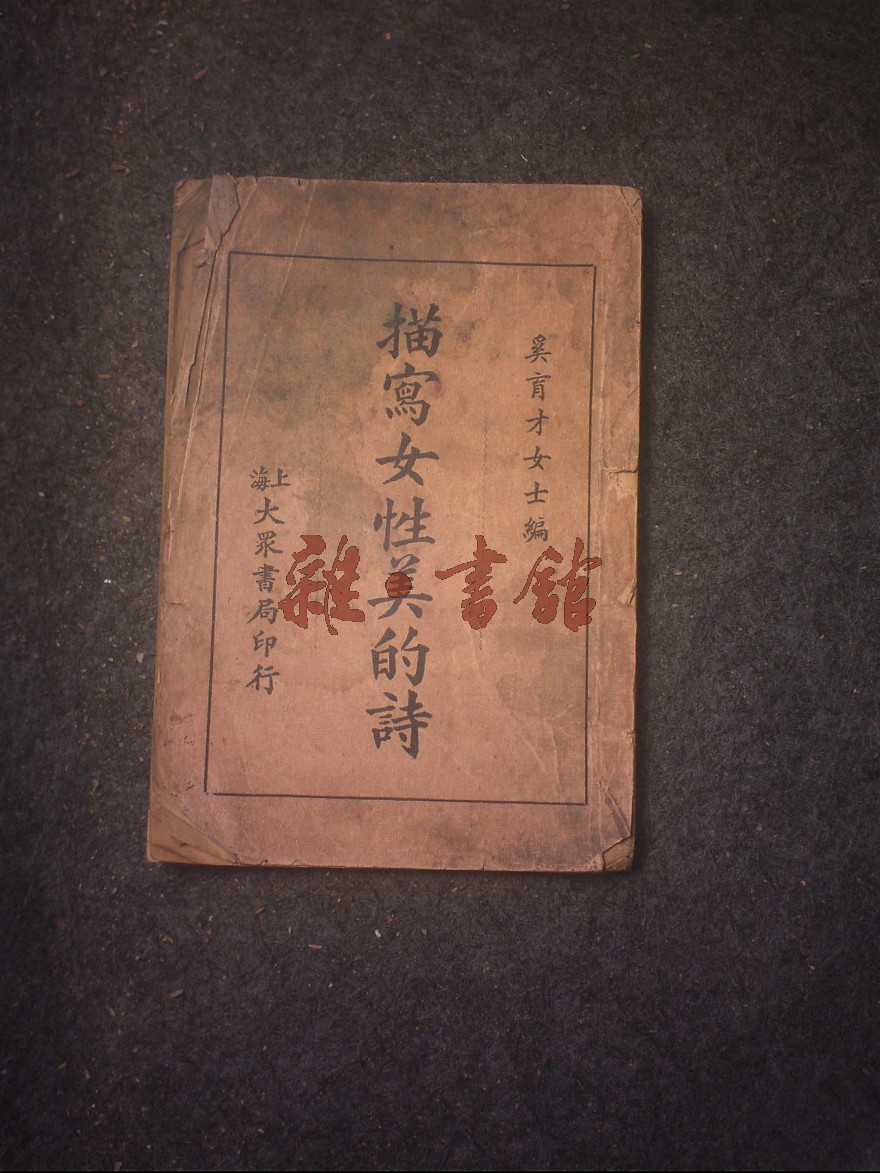 奚育才女士編
描寫女性美的詩
上海大眾書局印行
雜·書館